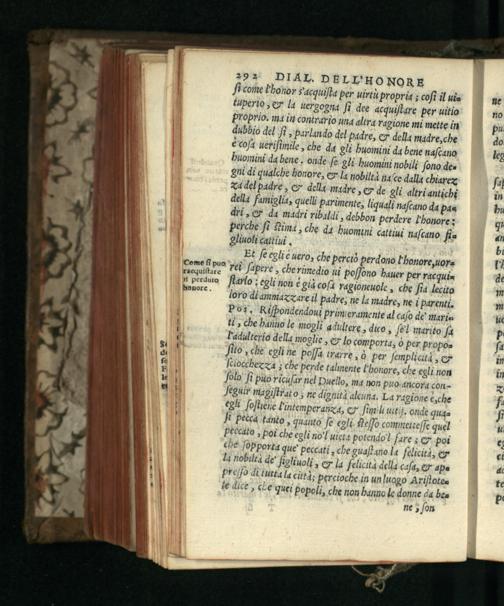 292 DIAL. DELL'HONORE
si come l'honor s'acquista per uirtù propria; cosi il ui-
tuperio, & la uergogna si dee acquistare per uitio
proprio. ma in contrario una altra ragione mi mette in
dubbio del sì, parlando del padre, & della madre, che
è cosa uerisimile, che da gli huomini da bene nascano
huomini da bene. onde se gli huomini nobili sono de-
gni di qualche honore, & la nobiltà nasce dalla chiarez
za del padre, & della madre, & de gli altri antichi
della famiglia, quelli parimente, liquali nascano da pa-
dri, & da madri ribaldi, debbon perdere l'honore:
perche si stima, che da huomini cattiui nascano fi-
gliuoli cattiui.
Et se egli è uero, che perciò perdono l'honore, uor-
Come si può
racquistare
il perduto
honore.
rei sapere, che rimedio ui possono hauer per racqui-
starlo; egli non è già cosa ragioneuole, che sia lecito
loro di ammazzare il padre, ne la madre, ne i parenti.
Pos. Rispondendoui primieramente al caso de' mari-
ti, che hanno le mogli adultere, dico, se'l marito sa
l'adulterio della moglie, & lo comporta, ò per propo-
sito, che egli ne possa trarre, ò per semplicità, &
sciocchezza; che perde talmente l'honore, che egli non
solo si può ricusar nel Duello, ma non può ancora con-
seguir magistrato, ne dignità alcuna. La ragione è, che
egli sostiene l'intemperanza, & simili uitij. onde qua-
si pecca tanto, quanto se egli stesso commettesse quel
peccato, poi che egli no'l uieta potendol fare; & poi
che sopporta que' peccati, che guastano la felicità, &
la nobiltà de' figliuoli, & la felicità della casa, & ap-
presso di tutta la città; percioche in un luogo Aristote-
le dice, che quei popoli, che non hanno le donne da be-
ne, son